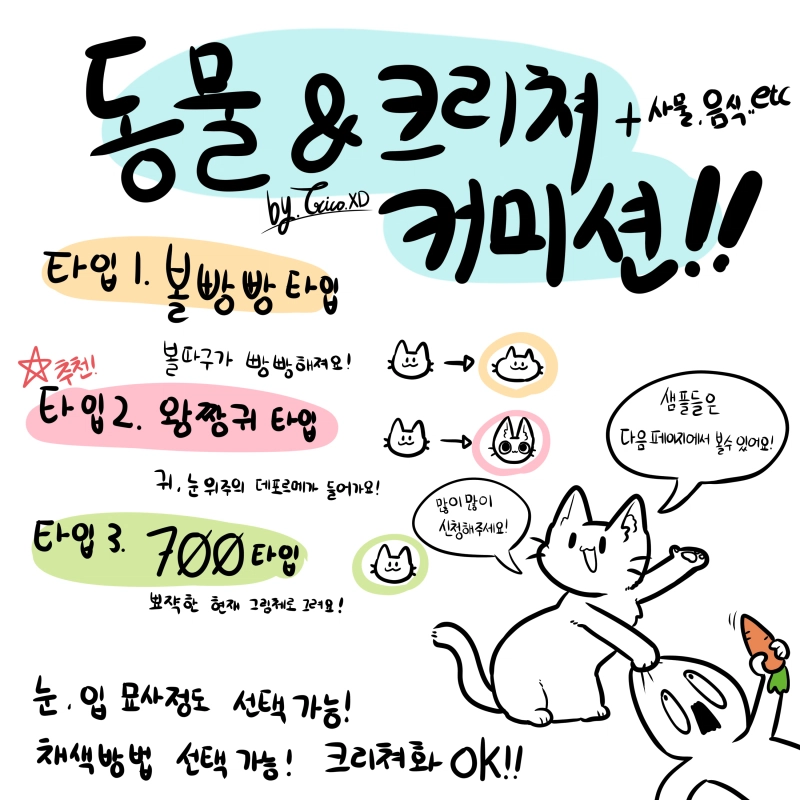 동물 & 크리쳐
+ 사물, 음식, etc
커미션!!
by. Trico.XD
타입 1. 볼빵빵 타입
볼따구가 빵빵해져요!
추천!
타입 2. 왕짱귀 타입
귀, 눈 위주의 데포르메가 들어가요!
타입 3. 700 타입
뽀쟉한 현재 그림체로 그려요!
샘플들은
다음 페이지에서 볼 수 있어요!
많이많이
신청해주세요!
눈, 입 묘사정도 선택 가능!
채색방법 선택 가능! 크리쳐화 OK!!